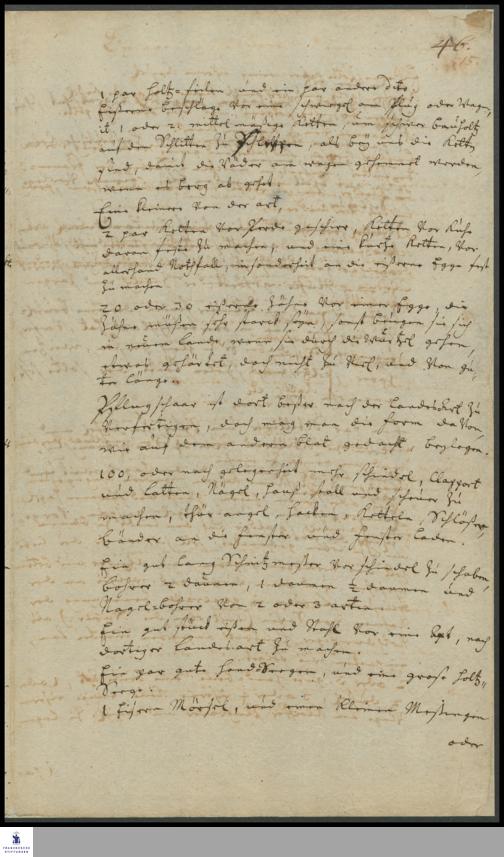 46.
1 par holtz-feilen und ein par andere dito
Eißerne beschläge vor eine schwengel am Pflug oder wagen,
it. 1 oder 2 mittel mäßige Ketten, um schwer bauholtz
auf dem Schlitten zu schleppen, als bey uns die Ketten
sind, damit die Räder am wagen gehemmet werden,
wenn es berg ab gehet.
Eine kleinere von der art,
2 par Ketten vor Pferde geschirr, Ketten vor Kühe
daran feste zu machen, und eine kurtze Ketten, vor
allerhand Nothfall, insonderheit an die eißerne Egge fest
zu machen.
20 oder 30 eißerne Zähne vor einer Egge, die
Zähne müßen sehr starck seyn, sonst biegen sie sich
in neuen Lande, wenn sie durch die Würtzel gehen,
etwas gehärtet, doch nicht zu viel, und von gu-
ter länge.
Pflugschaar ist dort beßer nach der Landesart zu
verfertigen, doch mag man die form davon,
wie auf dem andern blat gedacht, beylegen.
100, oder nach gelegenheit mehr schindel, Clapport
und Latten, Nägel, hauß stall und scheuer zu
machen, thür angel, hacken, Ketteln, Schlößer,
bänder an die fenster und fenster laden.
Ein gut lang Schnitzmeßer vor schindel zu schaben,
bohrer 2 daumen, 1 daumen ½ daumen und
Nagel-bohrer von 2 oder 3 arten
Ein gut stück eißen und Stahl vor eine Axt, nach
dortiger landesart zu machen.
Ein par gute Hand Seegen, und eine große holtz-
Seege.
1 Eisern Mörsel, und einen kleinen Meßingen
oder
FRANCKESCHE
STIFTUNGEN